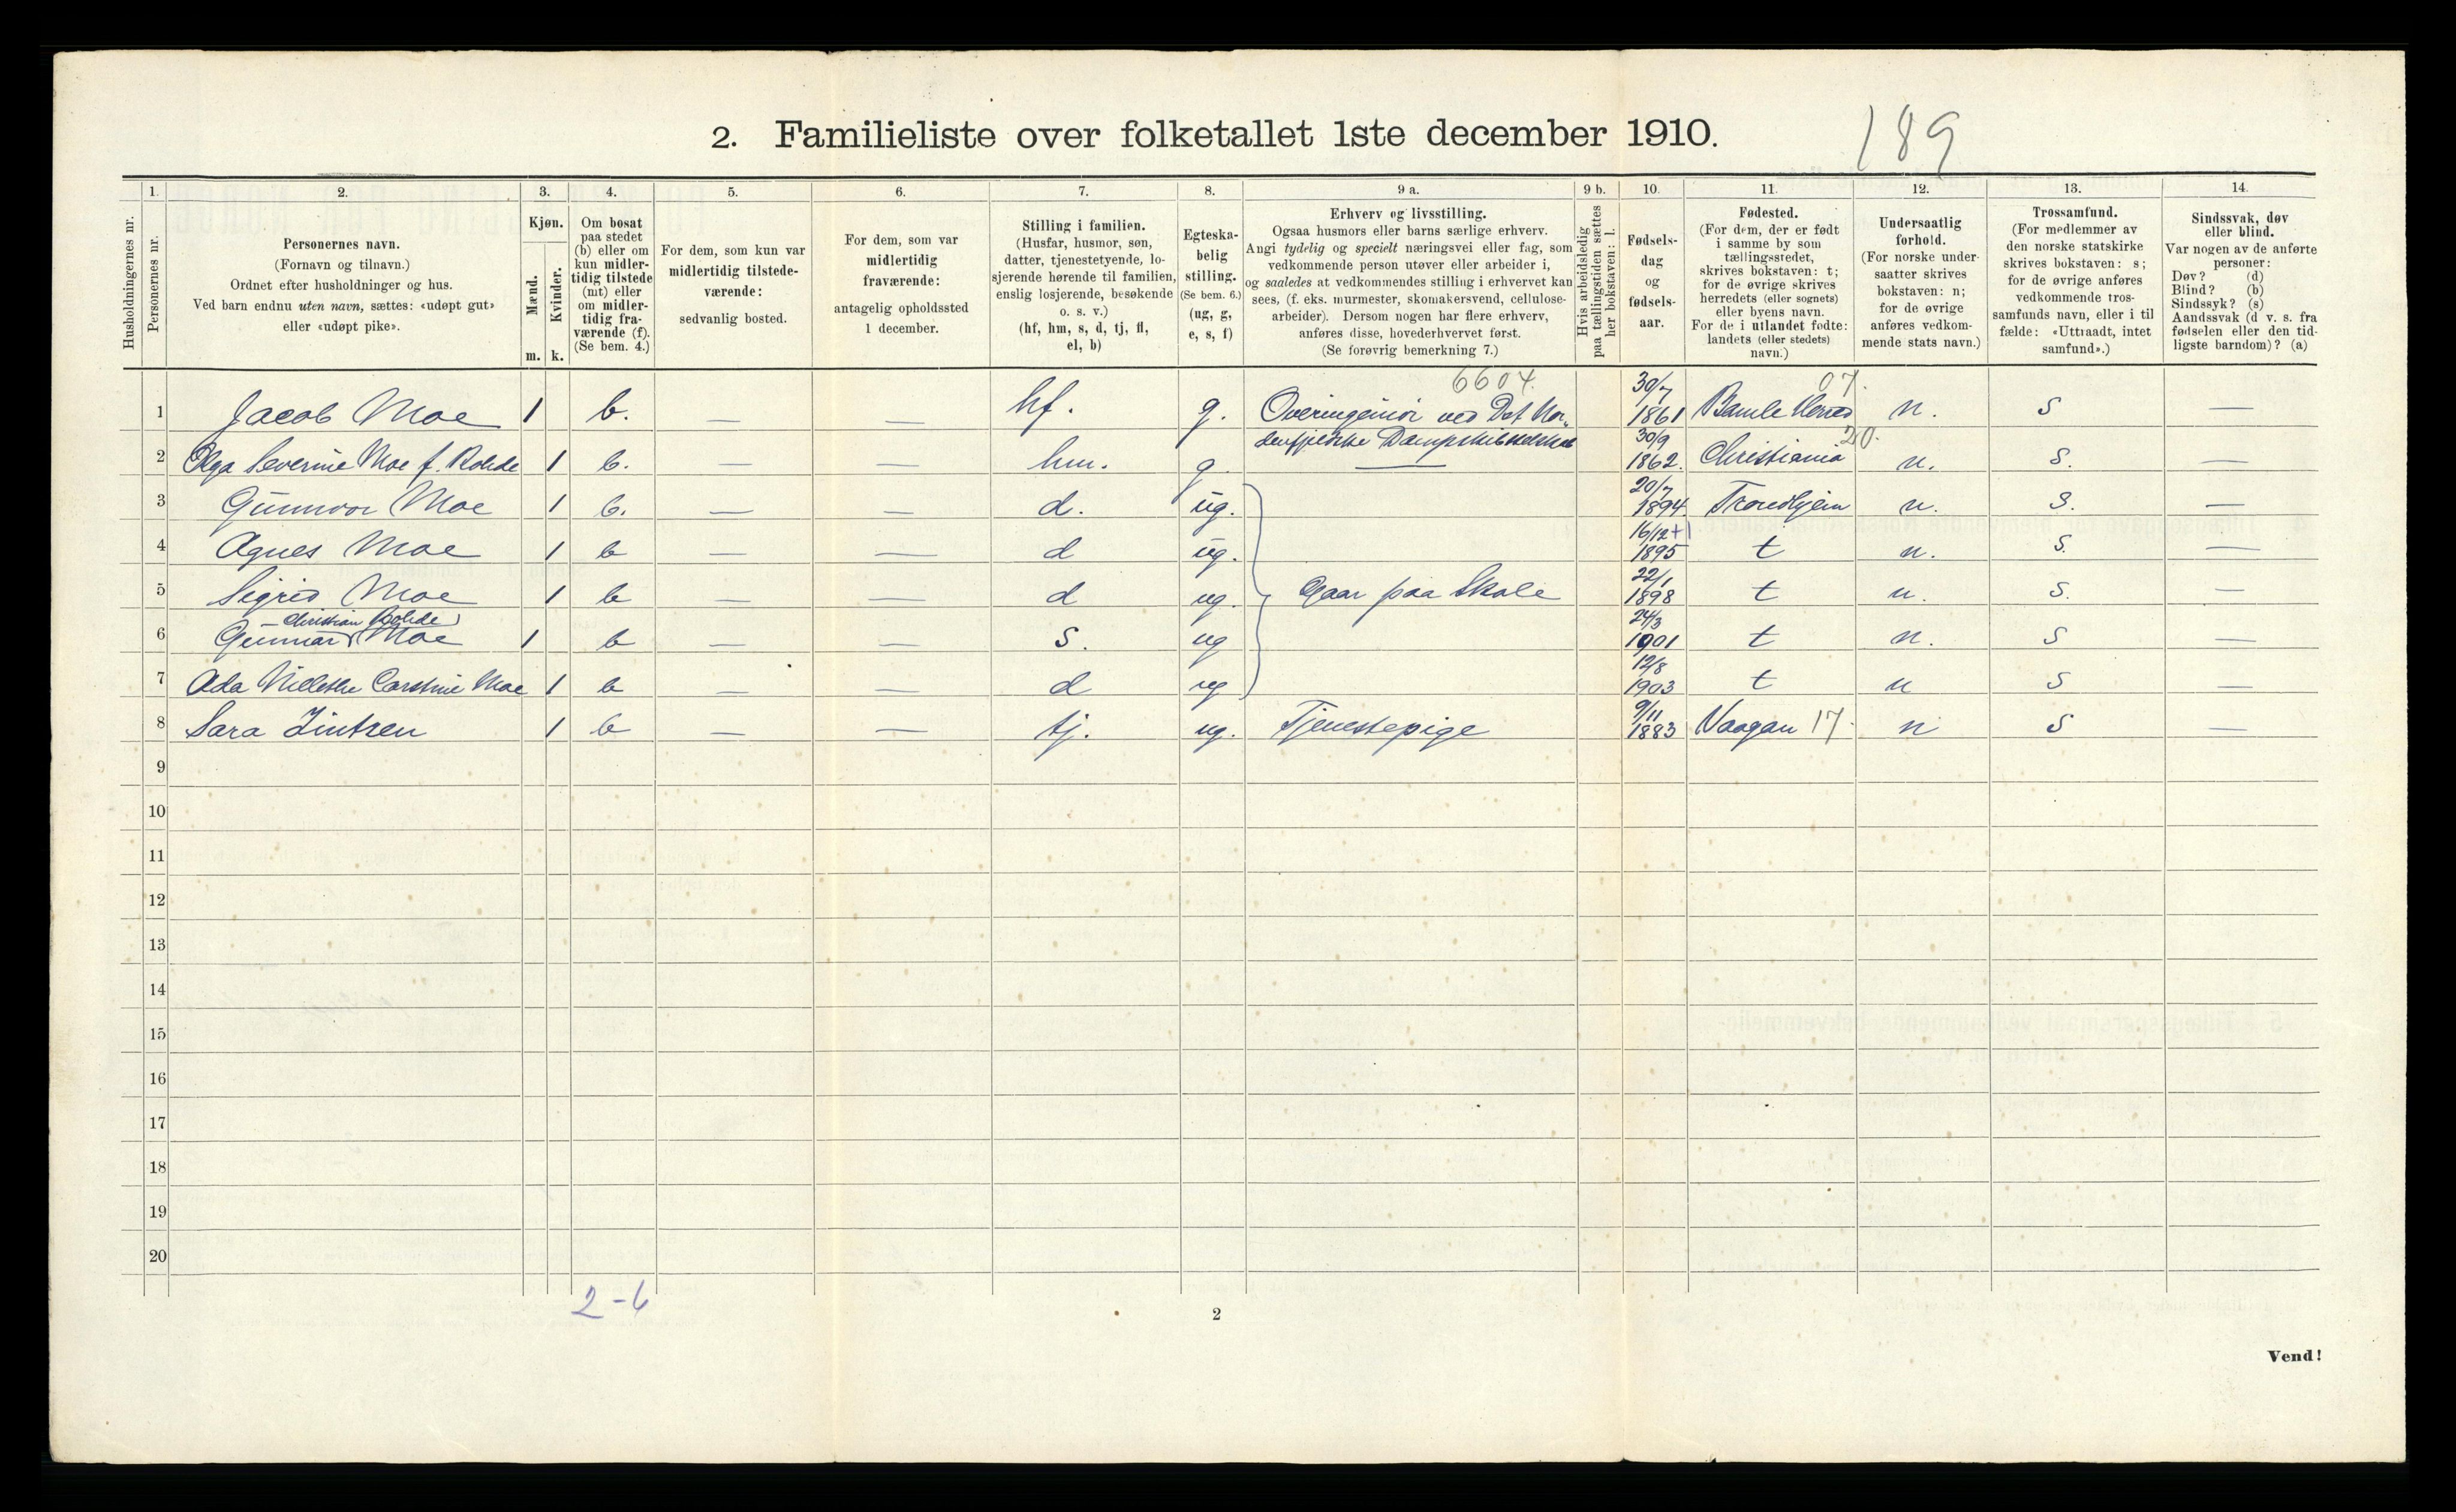 2. Familieliste over folketallet 1ste december 1910.
189
Husholdningernes nr.
1.
Personernes nr.
2.
Personernes navn.
(Fornavn og tilnavn.)
Ordnet efter husholdninger og hus.
Ved barn endnu uten navn, sættes: «udøpt gut»
eller «udøpt pike».
3.
Kjøn.
Mænd.
Kvinder.
m. k.
4.
Om bosat
paa stedet
(b) eller om
kun midler-
tidig tilstede
(mt) eller
om midler-
tidig fra-
værende (f).
(Se bem. 4.)
5.
For dem, som kun var
midlertidig tilstede-
værende:
sedvanlig bosted.
6.
For dem, som var
midlertidig
fraværende:
antagelig opholdssted
1 december.
7.
Stilling i familien.
(Husfar, husmor, søn,
datter, tjenestetyende, lo-
sjerende hørende til familien,
enslig losjerende, besøkende
o. s. v.)
(hf, hm, s, d, tj, fl,
el, b)
8.
Egteska-
belig
stilling.
(Se bem. 6.)
(ug, g,
e, s, f)
9 a.
Erhverv og livsstilling.
Ogsaa husmors eller barns særlige erhverv.
Angi tydelig og specielt næringsvei eller fag, som
vedkommende person utøver eller arbeider i,
og saaledes at vedkommendes stilling i erhvervet kan
sees, (f. eks. murmester, skomakersvend, cellulose-
arbeider). Dersom nogen har flere erhverv,
anføres disse, hovederhvervet først.
(Se forøvrig bemerkning 7.)
9 b.
Hvis arbeidsledig
paa tællingstiden sættes
her bokstaven: l.
10.
Fødsels-
dag
og
fødsels-
aar.
11.
Fødested.
(For dem, der er født
i samme by som
tællingsstedet,
skrives bokstaven: t;
for de øvrige skrives
herredets (eller sognets)
eller byens navn.
For de i utlandet fødte:
landets (eller stedets)
navn.)
12.
Undersaatlig
forhold.
(For norske under-
saatter skrives
bokstaven: n;
for de øvrige
anføres vedkom-
mende stats navn.)
13.
Trossamfund.
(For medlemmer av
den norske statskirke
skrives bokstaven: s;
for de øvrige anføres
vedkommende tros-
samfunds navn, eller i til
fælde: «Uttraadt, intet
samfund».)
14.
Sindssvak, døv
eller blind.
Var nogen av de anførte
personer:
Døv? (d)
Blind? (b)
Sindssyk? (s)
Aandssvak (d v. s. fra
fødselen eller den tid-
ligste barndom)? (a)
6604. 30/7 07.
1 Jacob Moe 1 b. — — hf. g. Overingeniør ved Det Nor- 1861 Bamle Herred n. s —
denfjeldske Dampskibsselskab 30/9 20.
2 Olga Severine Moe f. Rohde 1 b. — — hm. g — 1862. Christiania n. s. —
20/7
3 Gunnvor Moe 1 b. — — d. ug. 1894 Trondhjem n. s. —
16/12 +1
4 Agnes Moe 1 b — — d ug. 1895 t n. s. —
22/1
5 Sigrid Moe 1 b — — d ug. Gaar paa Skole 1898 t n. s. —
Christian Rohde 24/3
6 Gunnar Moe 1 b — — s. ug 1901 t n. s —
12/8
7 Ada Carstine Moe 1 b — — d ug 1903 t n s —
9/11
8 Sara 1 b — — tj. ug. Tjenestepige 1883 Vaagan 17 n s —
9
10
11
12
13
14
15
16
17
18
19
20
2-6
2
Vend!